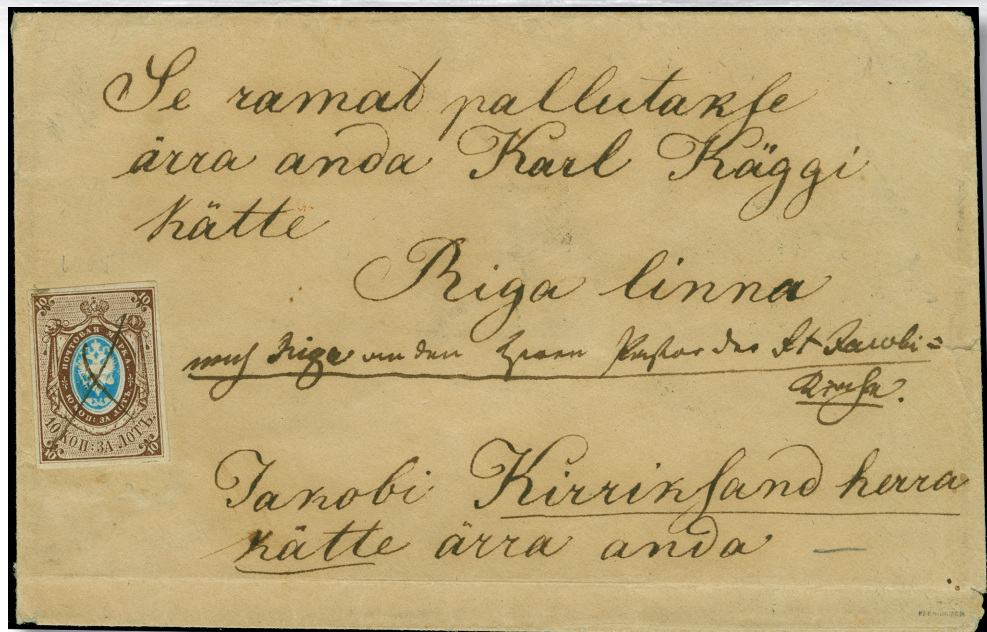 Se ramat pallutakse
ärra anda Karl Käggi
kätte
Riga linna
nach Riga an den Herrn Pastor der St Jacobi=
Kirche.
Jakobi Kirriksand herra
kätte ärra anda —
ПОЧТОВАЯ МАРКА
10 КОП: ЗА ЛОТЪ
10 КОП: ЗА ЛОТЪ.
10
10
10
10